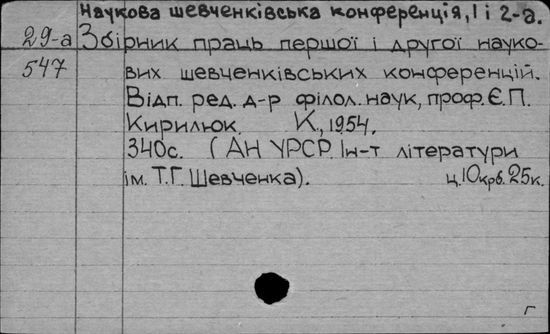 Наукова шевченківська конференція, I і 2-а.
29-а Збірник праць першої і другої науко-
547 вих шевченківських конференцій.
Відп. ред. д-р філол. наук, проф. Є.П.
Кирилюк. К., 1954.
340с. (АН УРСР. Ін-т літератури
ім. Т.Г. Шевченка). ц. 10крб. 25к.
г